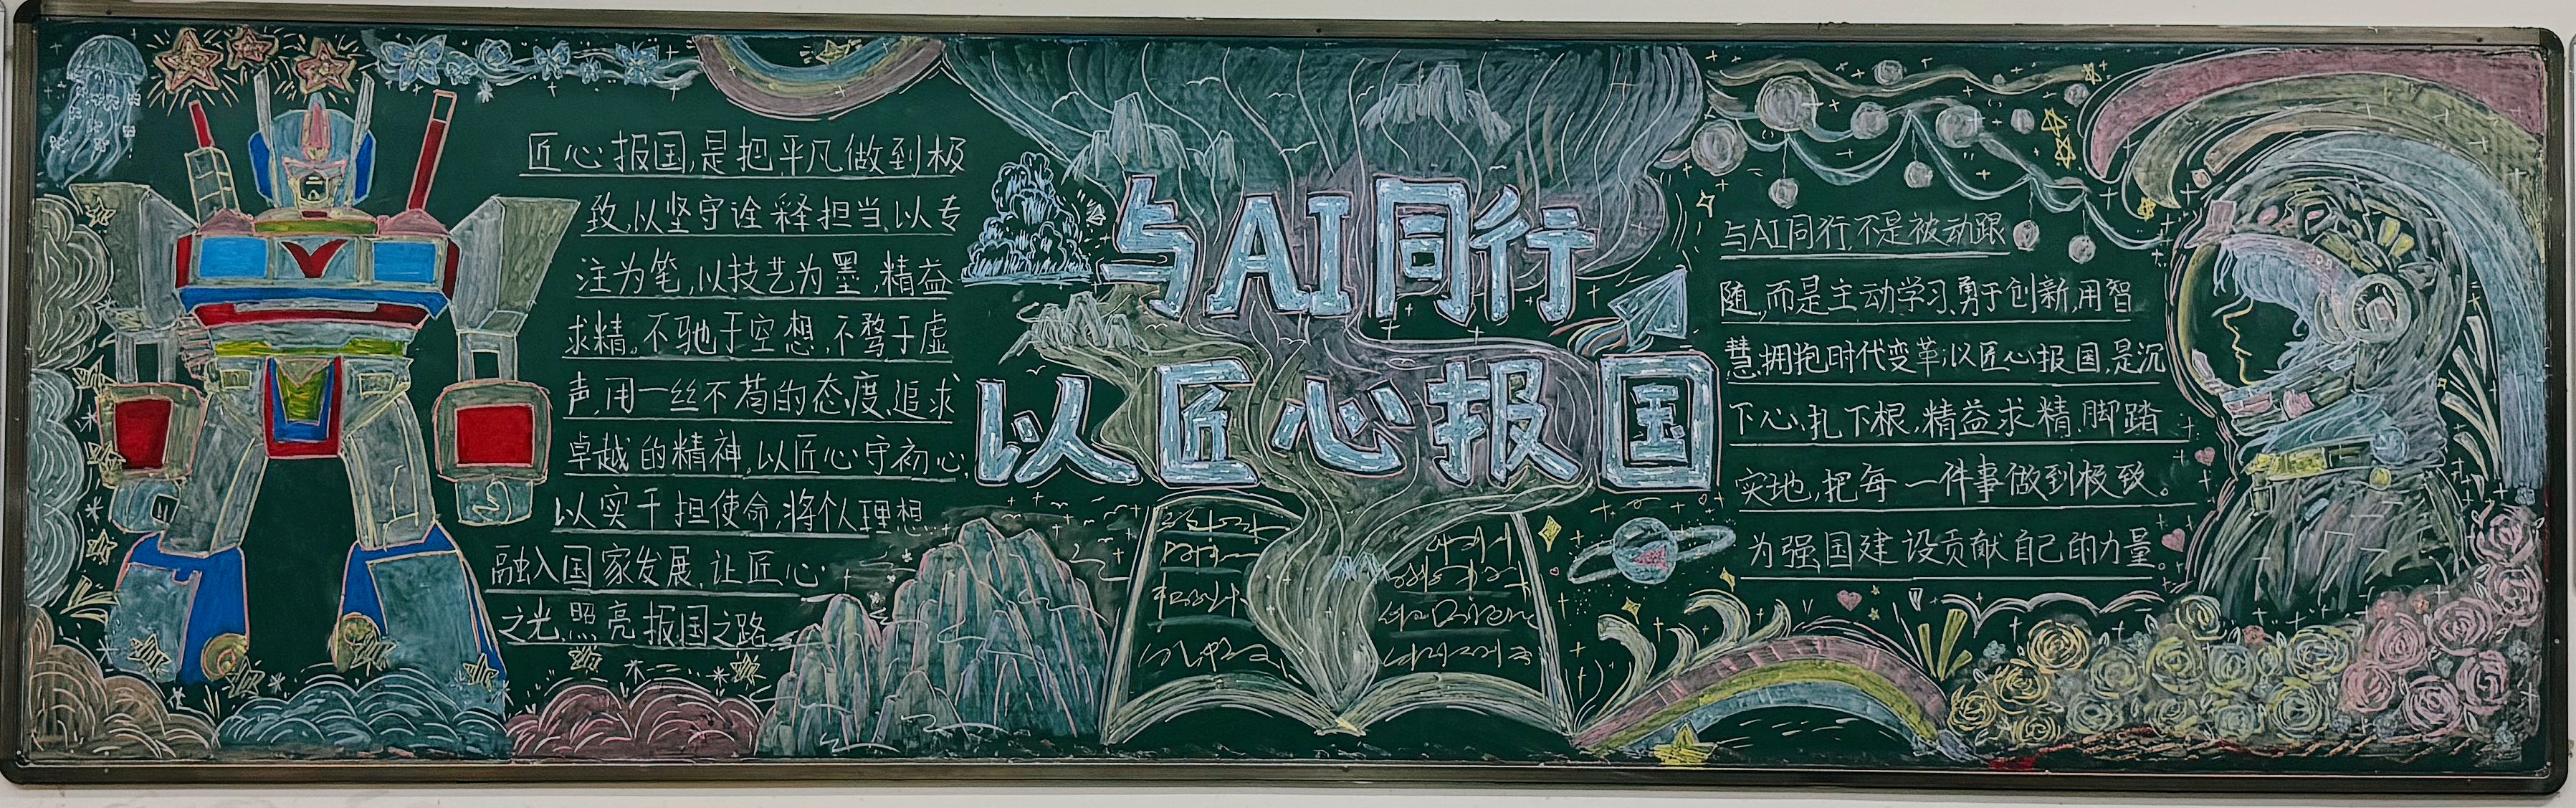 匠心报国,是把平凡做到极
致,以坚守诠释担当,以专
注为笔,以技艺为墨,精益
求精。不驰于空想,不骛于虚
声,用一丝不苟的态度,追求
卓越的精神,以匠心守初心,
以实干担使命,将个人理想
融入国家发展,让匠心
之光,照亮报国之路
与AI同行
以匠心报国
与AI同行,不是被动跟
随,而是主动学习,勇于创新,用智
慧拥抱时代变革;以匠心报国,是沉
下心,扎下根,精益求精,脚踏
实地,把每一件事做到极致。
为强国建设贡献自己的力量